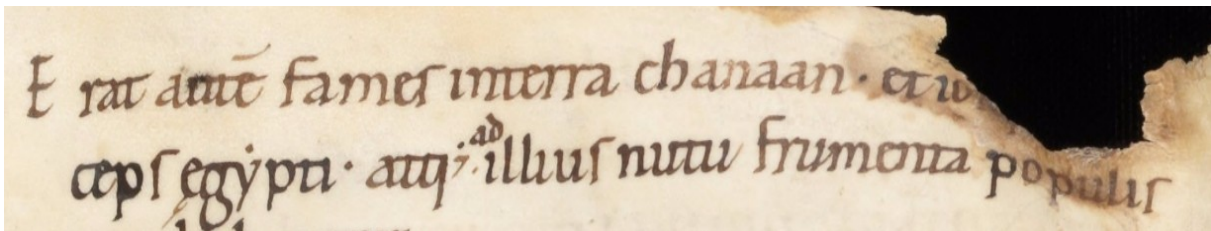 Erat autē fames interra chanaan · et
ceps egẏpti · atq; ad illius nutu frumenta populis